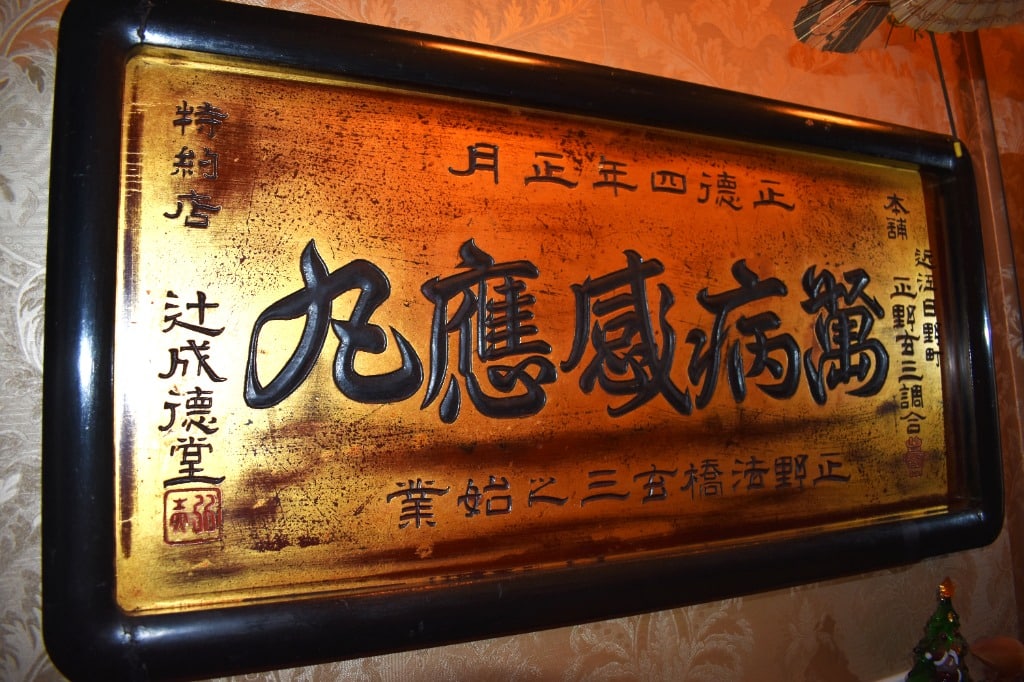 本舗
近江日野町
正野玄三調合
正徳四年正月
萬病感應丸
正野法橋玄三之始業
特約店
辻成德堂